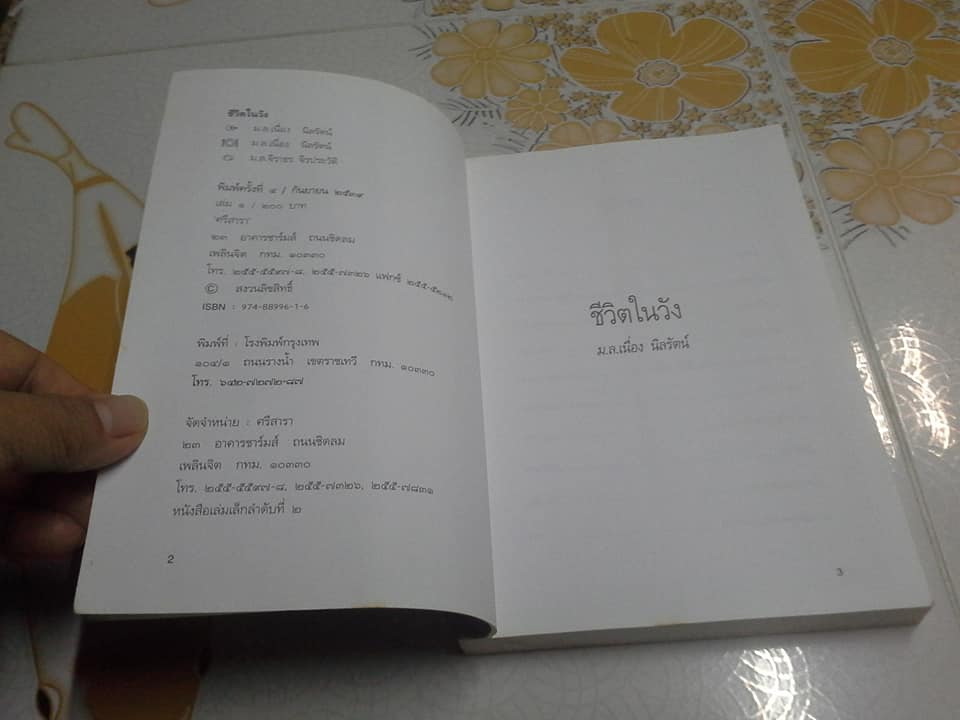 ชีวิตในวัง
ม.ล.เนื่อง นิลรัตน์
ม.ล.เนื่อง นิลรัตน์
ม.ล.จิราธร จิรประวัติ
พิมพ์ครั้งที่ ๔ / กันยายน ๒๕๓๙
เล่ม ๑ / ๒๐๐ บาท
'ศรีสารา'
๒๓ อาคารชาร์มส์ ถนนชิดลม
เพลินจิต กทม. ๑๐๓๓๐
โทร. ๒๕๕-๕๕๙๗-๘, ๒๕๕-๗๓๒๖ แฟกซ์ ๒๕๕-๕๒๑๒
© สงวนลิขสิทธิ์
ISBN : 974-88996-1-6
พิมพ์ที่ : โรงพิมพ์กรุงเทพ
๑๐๔/๑ ถนนรางน้ำ เขตราชเทวี กทม. ๑๐๓๓๐
โทร. ๖๔๒-๗๒๗๒-๘๗
จัดจำหน่าย : ศรีสารา
๒๓ อาคารชาร์มส์ ถนนชิดลม
เพลินจิต กทม. ๑๐๓๓๐
โทร. ๒๕๕-๕๕๙๗-๘, ๒๕๕-๗๓๒๖, ๒๕๕-๗๘๓๑
หนังสือเล่มเล็กลำดับที่ ๒
2
ชีวิตในวัง
ม.ล.เนื่อง นิลรัตน์
3